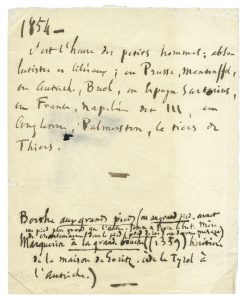 1854 —
C'est l'heure des petits hommes ; abso-
lutistes et libéraux ; en Prusse, Manteuffel,
en Autriche, Buol, en Espagne Sartorius,
en France, Napoléon dit III, en
Angleterre, Palmerston, le vieux de
Thiers.
Berthe aux grands pieds (ou au grand pied. avait
un pied plus grand que l'autre.
Marguerite à la grande bouche (1339) héritière
de la maison de Goritz. cède le Tyrol à
l'Autriche)